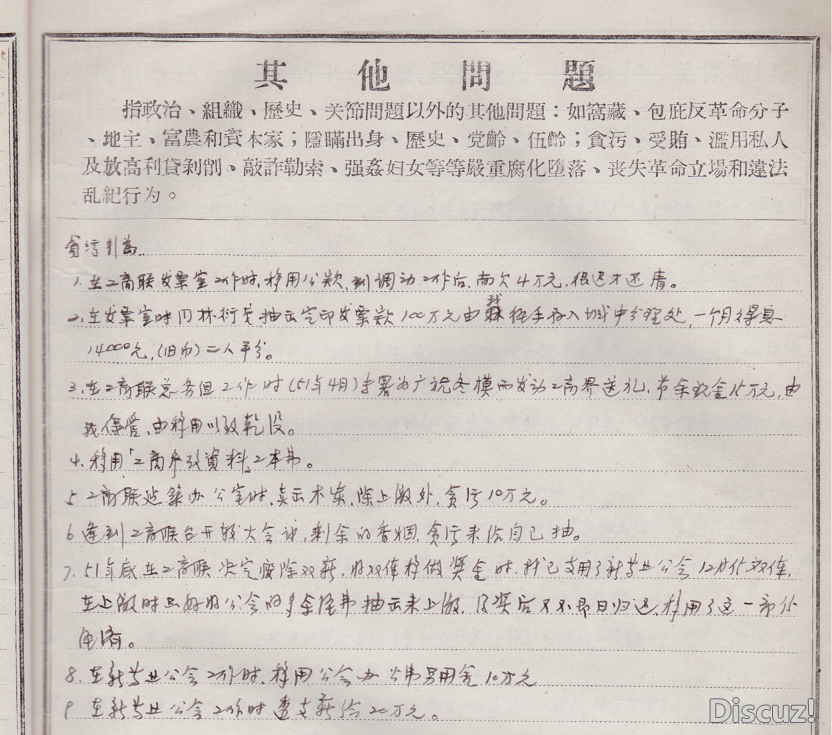 其他問題
指政治、組織、歷史、关節問題以外的其他問題：如窩藏、包庇反革命分子
、地主、富農和資本家；隱瞞出身、歷史、党齡、伍齡；貪污、受賄、濫用私人
及放高利貸剝削、敲詐勒索、强姦妇女等等嚴重腐化墮落、丧失革命立場和違法
乱紀行为。
貪污行為
1. 在工商联发票室工作时,移用公款,到调动工作后,尚欠4万元,很迟才还清。
2. 在发票室时同林衍 抽出定印发票款100万元由我经手存入城中分理处,一个月得息
14000元,(旧币)二人平分。
3. 在工商联总务组工作时(51年4月)专署为广说冬模而发动工商界送礼,节余现金15万元,由
我保管,由移用以致乾没。
4. 移用「工商参政資料」2本书。
5 工商联建築办公室时,卖出木柴,除上缴外,貪污10万元。
6 逢到工商联召开较大会议,剩余的香烟,貪污来给自己抽。
7. 51年底在工商联决定废除双薪,将双俸移做奖金时,我已支用了新 业公会12月份双俸,
在上缴时 好将公会的 余 抽出来上缴,得奖后又不即日归还,移用了这一部份
8. 在新 业公会工作时,移用公会办公 另用金10万元
9 在新 业公会工作时透支薪给20万元。
Discuz!